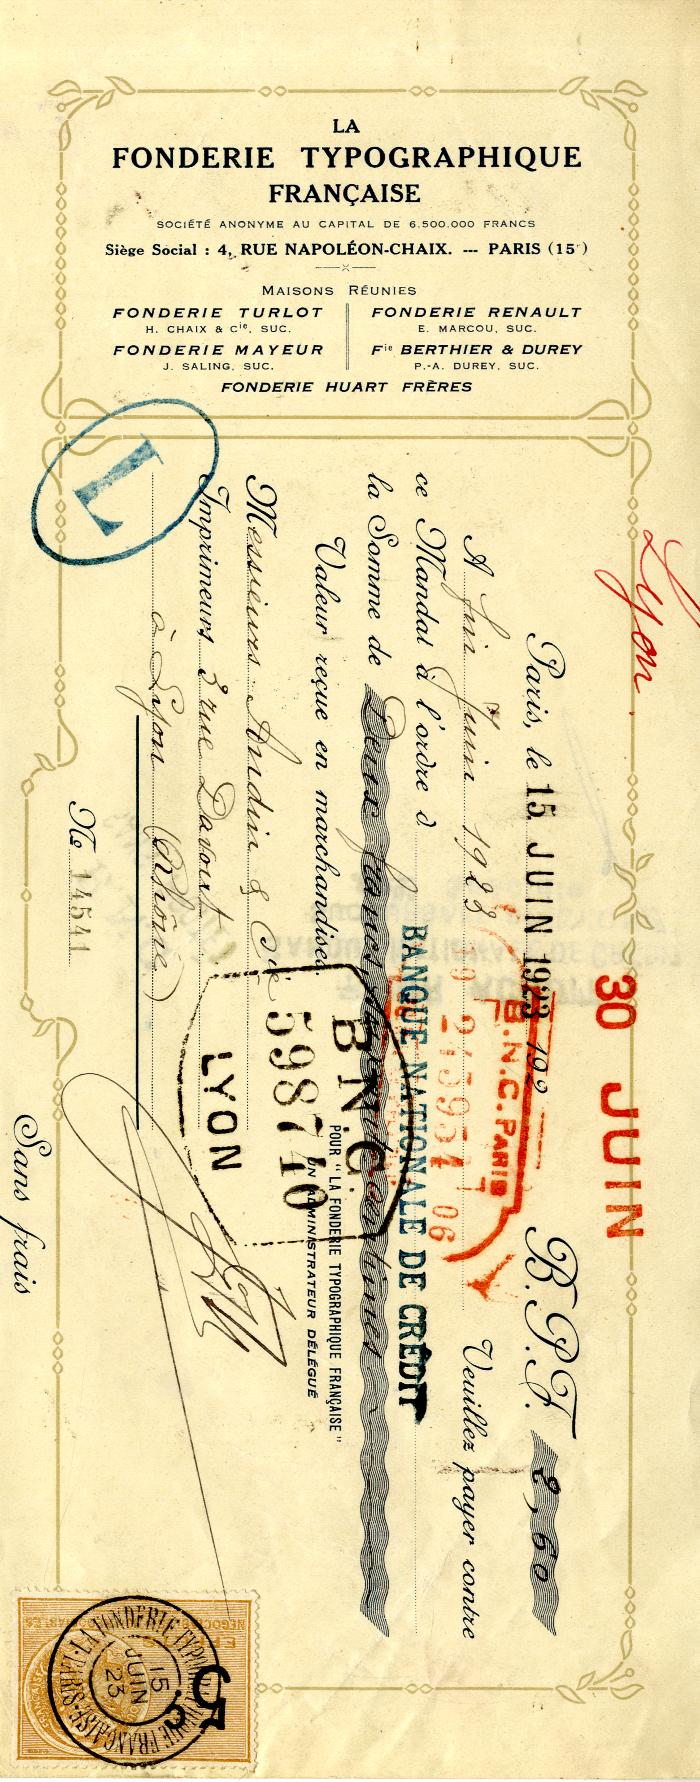 LA
FONDERIE TYPOGRAPHIQUE
FRANÇAISE
SOCIÉTÉ ANONYME AU CAPITAL DE 6.500.000 FRANCS
Siège Social : 4, RUE NAPOLÉON-CHAIX. --- PARIS (15ᵉ)
MAISONS RÉUNIES
FONDERIE TURLOT
H. CHAIX & Cie, SUC.
FONDERIE MAYEUR
J. SALING, SUC.
FONDERIE RENAULT
E. MARCOU, SUC.
Fie BERTHIER & DUREY
P.-A. DUREY, SUC.
FONDERIE HUART FRÈRES
L
Lyon
30 JUIN
Paris, le 15 JUIN 1923 192
B.P.F. 2,60
A fin Juin 1923
Veuillez payer contre
ce Mandat à l'ordre d
BANQUE NATIONALE DE CRÉDIT
la Somme de Deux francs soixante centimes
Valeur reçue en marchandises.
Messieurs Audin & Cie
Imprimeurs 3 rue Davout
à Lyon (Rhône)
B.N.C. PARIS
06
B.N.C.
598740
LYON
POUR "LA FONDERIE TYPOGRAPHIQUE FRANÇAISE"
UN ADMINISTRATEUR DÉLÉGUÉ
No 14541
Sans frais
LA FONDERIE TYPOGRAPHIQUE FRANÇAISE PARIS
15
JUIN
23
5c